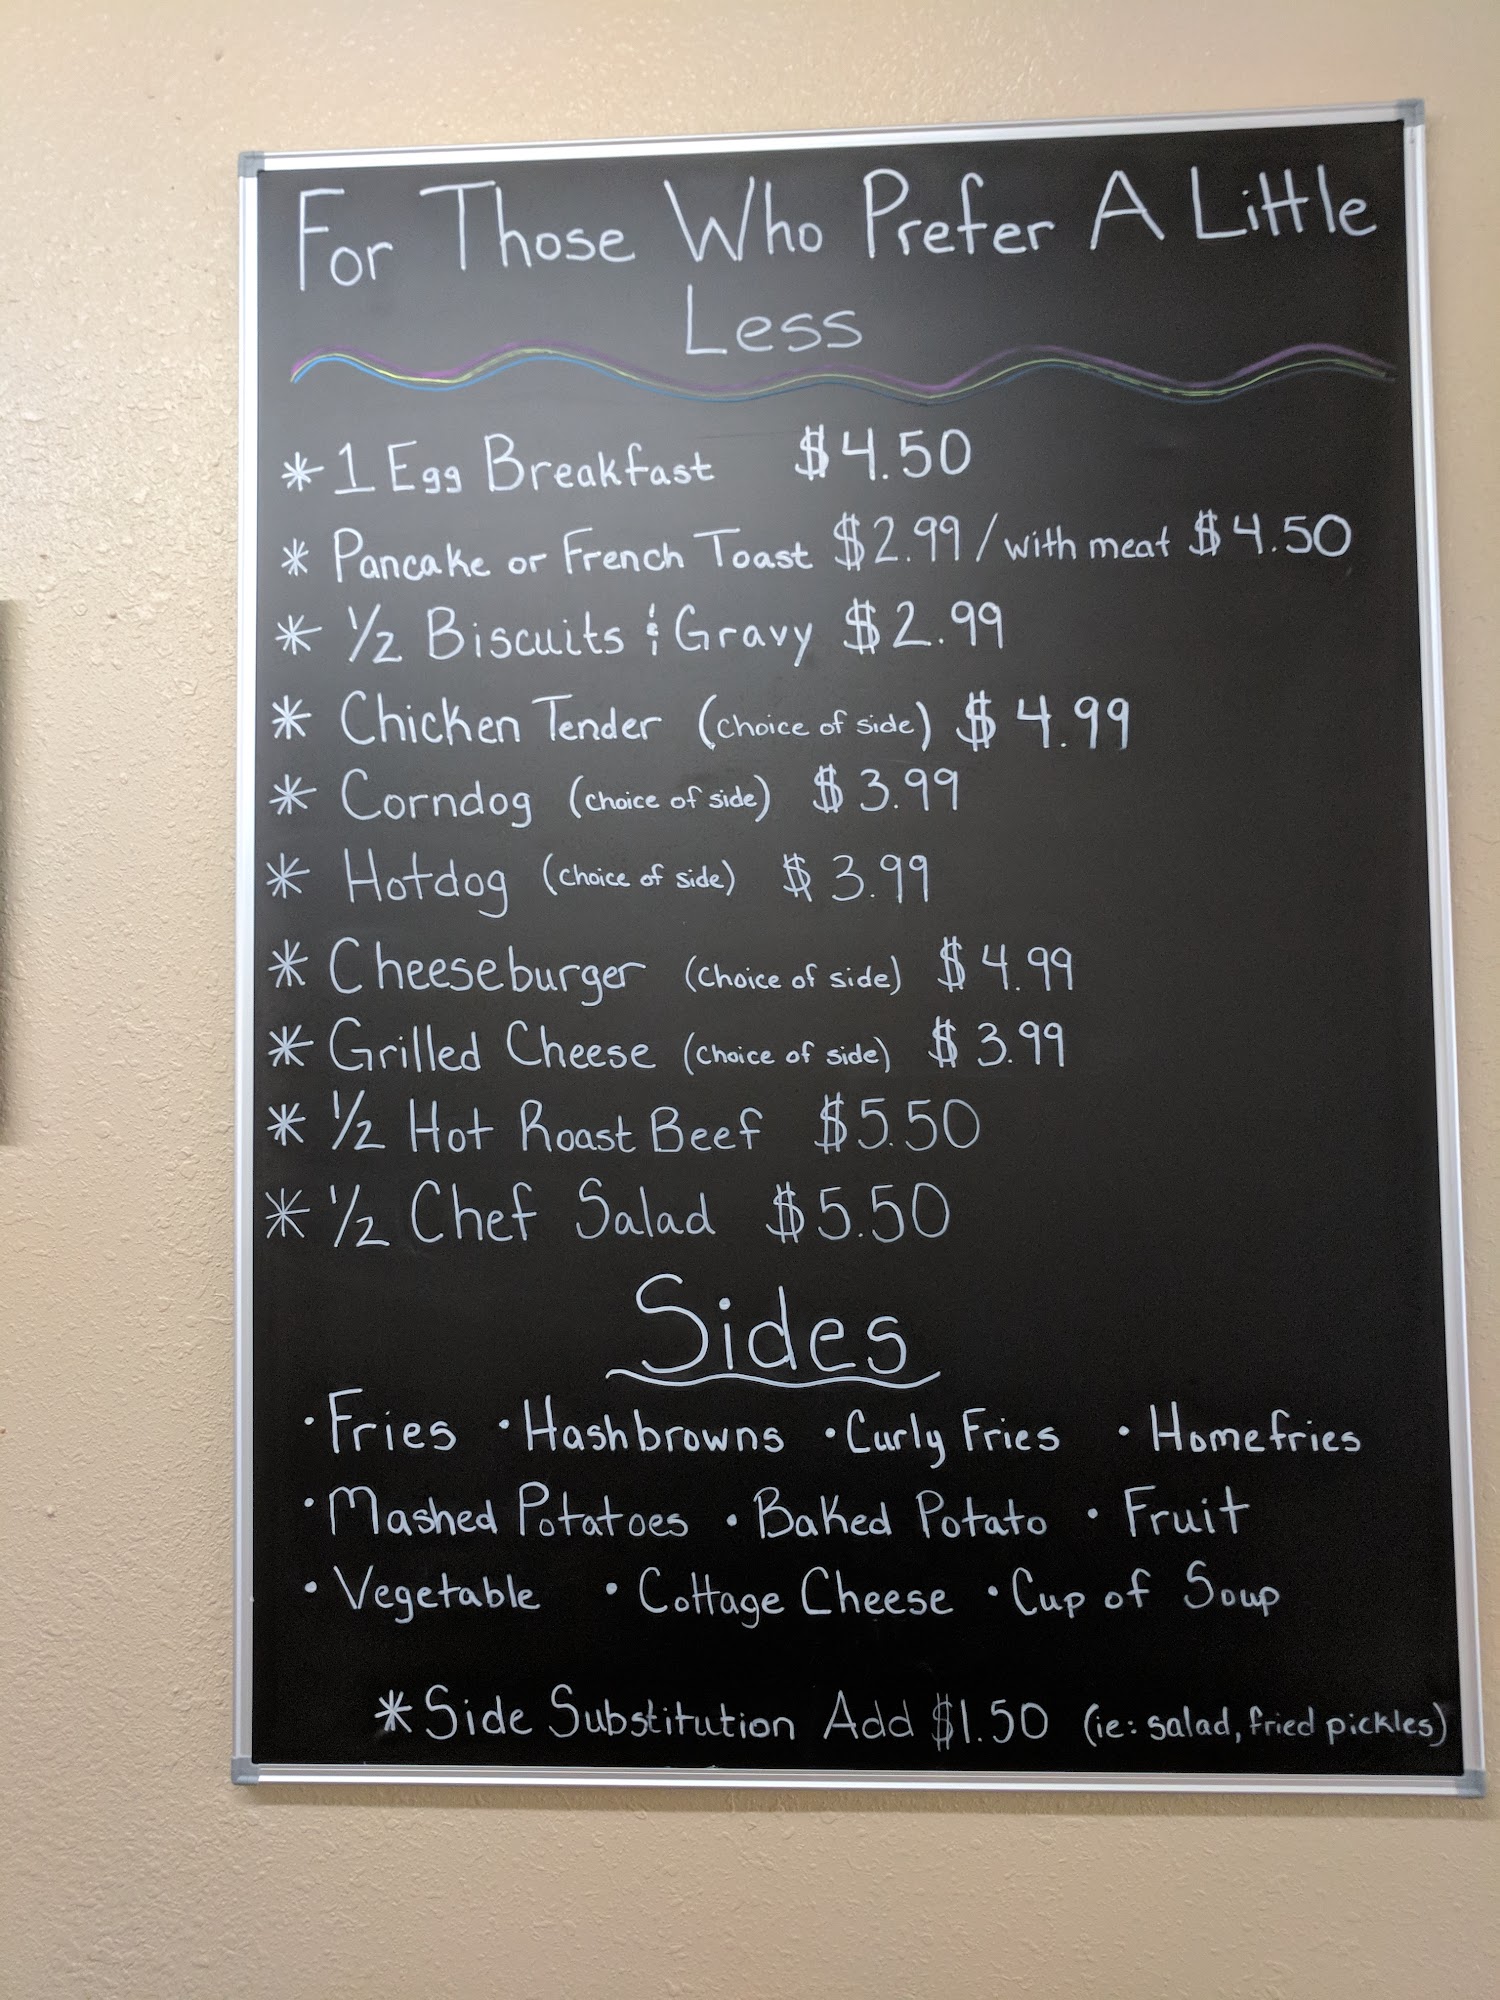 For Those Who Prefer A Little
Less
* 1 Egg Breakfast $4.50
* Pancake or French Toast $2.99 / with meat $4.50
* 1/2 Biscuits & Gravy $2.99
* Chicken Tender (choice of side) $4.99
* Corndog (choice of side) $3.99
* Hotdog (choice of side) $3.99
* Cheeseburger (choice of side) $4.99
* Grilled Cheese (choice of side) $3.99
* 1/2 Hot Roast Beef $5.50
* 1/2 Chef Salad $5.50
Sides
• Fries • Hashbrowns • Curly Fries • Homefries
• Mashed Potatoes • Baked Potato • Fruit
• Vegetable • Cottage Cheese • Cup of Soup
* Side Substitution Add $1.50 (ie: salad, fried pickles)